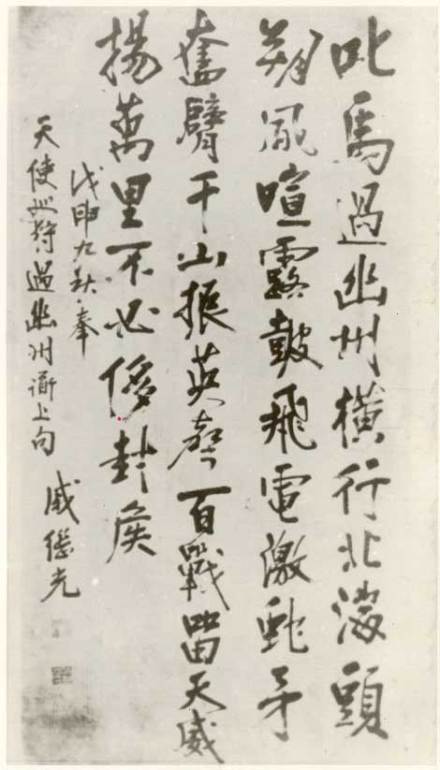 叱馬過幽州橫行北海頭
朔風喧露鼓飛電激蛇矛
奮臂千山振英聲百戰留天威
揚萬里不必侈封侯
戊申九秋奉
天使巡狩過幽州上句
戚繼光